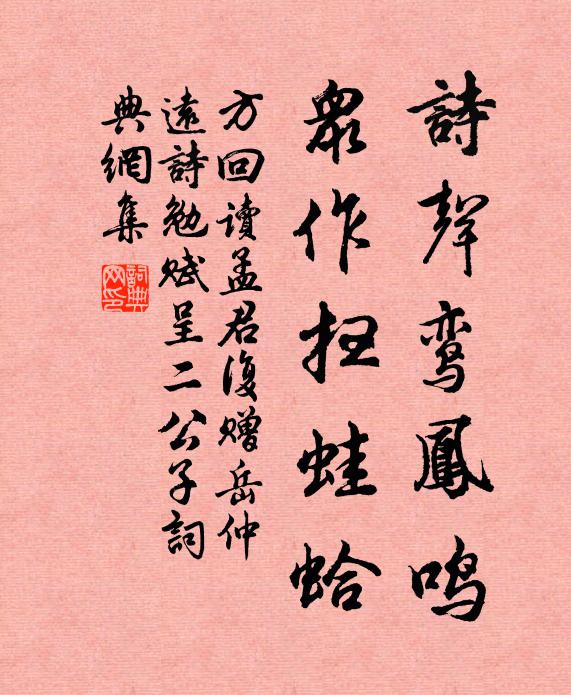 詩聲鸾鳳鸣
眾作扫蛙蛤
方回讀孟君復赠岳仲
遠詩勉赋呈二公子詞
典網集
詞典网印